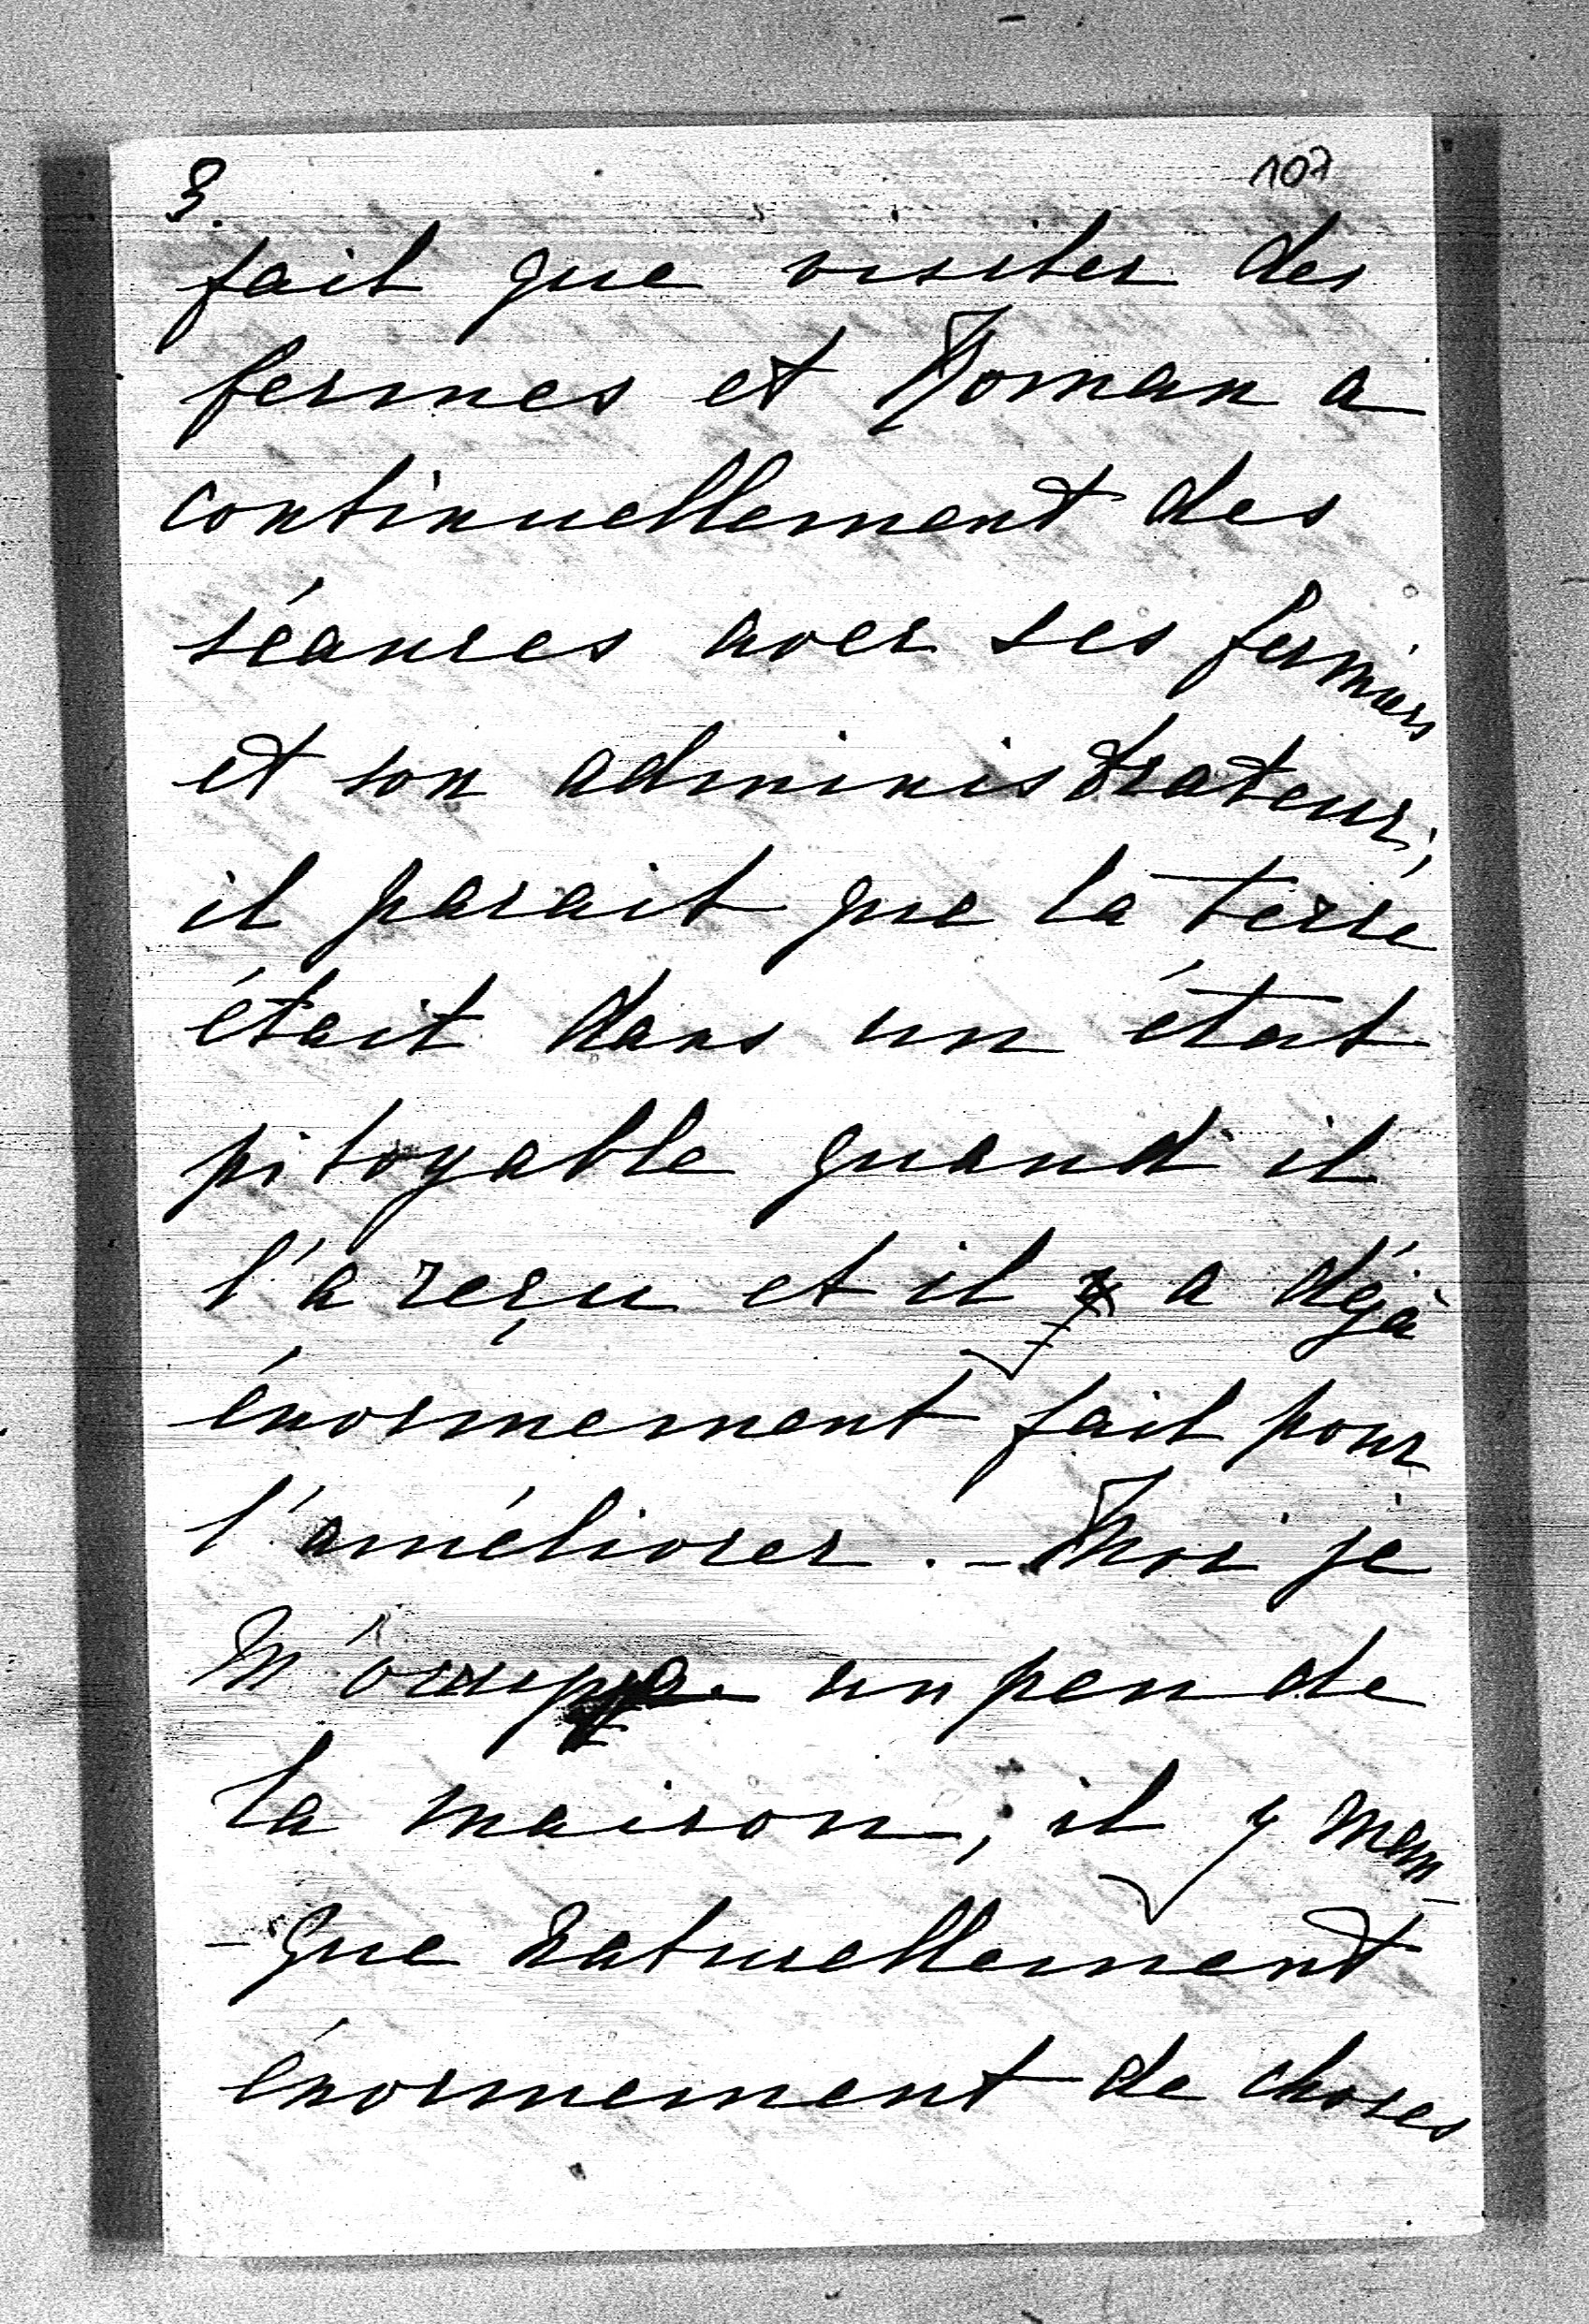 3.
107
fait que visiter des
fermes et Roman a
continuellement des
séances avec ses fermiers
et son administrateur;
il parait que la terre
était dans un état
pitoyable quand il
l'a reçu et il y a déjà
énormement fait pour
l'améliorer. - Moi je
m'occupe un peu de
la maison, il y man-
-que naturellement
énormement de choses